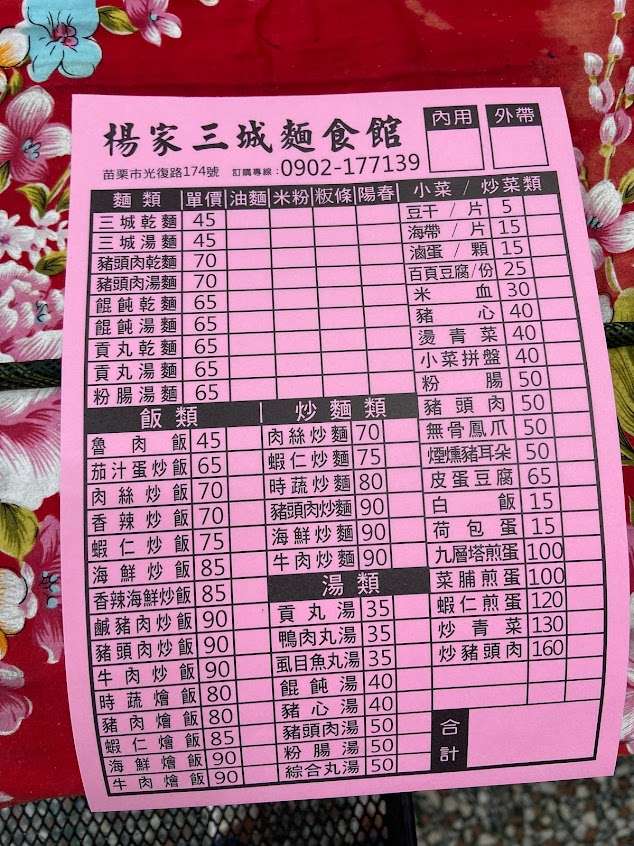 楊家三城麵食館
內用
外帶
苗栗市光復路174號 訂購專線：0902-177139
麵類 單價 油麵 米粉 粄條 陽春
三城乾麵 45
三城湯麵 45
豬頭肉乾麵 70
豬頭肉湯麵 70
餛飩乾麵 65
餛飩湯麵 65
貢丸乾麵 65
貢丸湯麵 65
粉腸湯麵 65
飯類
魯肉飯 45
茄汁蛋炒飯 65
肉絲炒飯 70
香辣炒飯 70
蝦仁炒飯 75
海鮮炒飯 85
香辣海鮮炒飯 85
鹹豬肉炒飯 90
豬頭肉炒飯 90
牛肉炒飯 90
時蔬燴飯 80
豬肉燴飯 80
蝦仁燴飯 85
海鮮燴飯 90
牛肉燴飯 90
炒麵類
肉絲炒麵 70
蝦仁炒麵 75
時蔬炒麵 80
豬頭肉炒麵 90
海鮮炒麵 90
牛肉炒麵 90
湯類
貢丸湯 35
鴨肉丸湯 35
虱目魚丸湯 35
餛飩湯 40
豬心湯 40
豬頭肉湯 50
粉腸湯 50
綜合丸湯 50
小菜/炒菜類
豆干/片 5
海帶/片 15
滷蛋/顆 15
百頁豆腐/份 25
米血 30
豬心 40
燙青菜 40
小菜拼盤 40
粉腸 50
豬頭肉 50
無骨鳳爪 50
煙燻豬耳朵 50
皮蛋豆腐 65
白飯 15
荷包蛋 15
九層塔煎蛋 100
菜脯煎蛋 100
蝦仁煎蛋 120
炒青菜 130
炒豬頭肉 160
合計